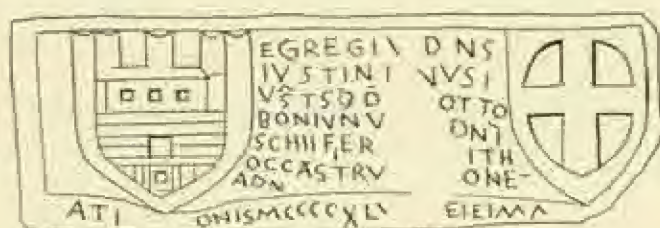 EGREGIV DNS
IVSTINI VUSI
VSTSDD OTTO
BONIVNV DNI
SCHIIFER ITH
OCCASTRV ONE-
ADN
ATI ONISMCCCCXLV EIEIMA